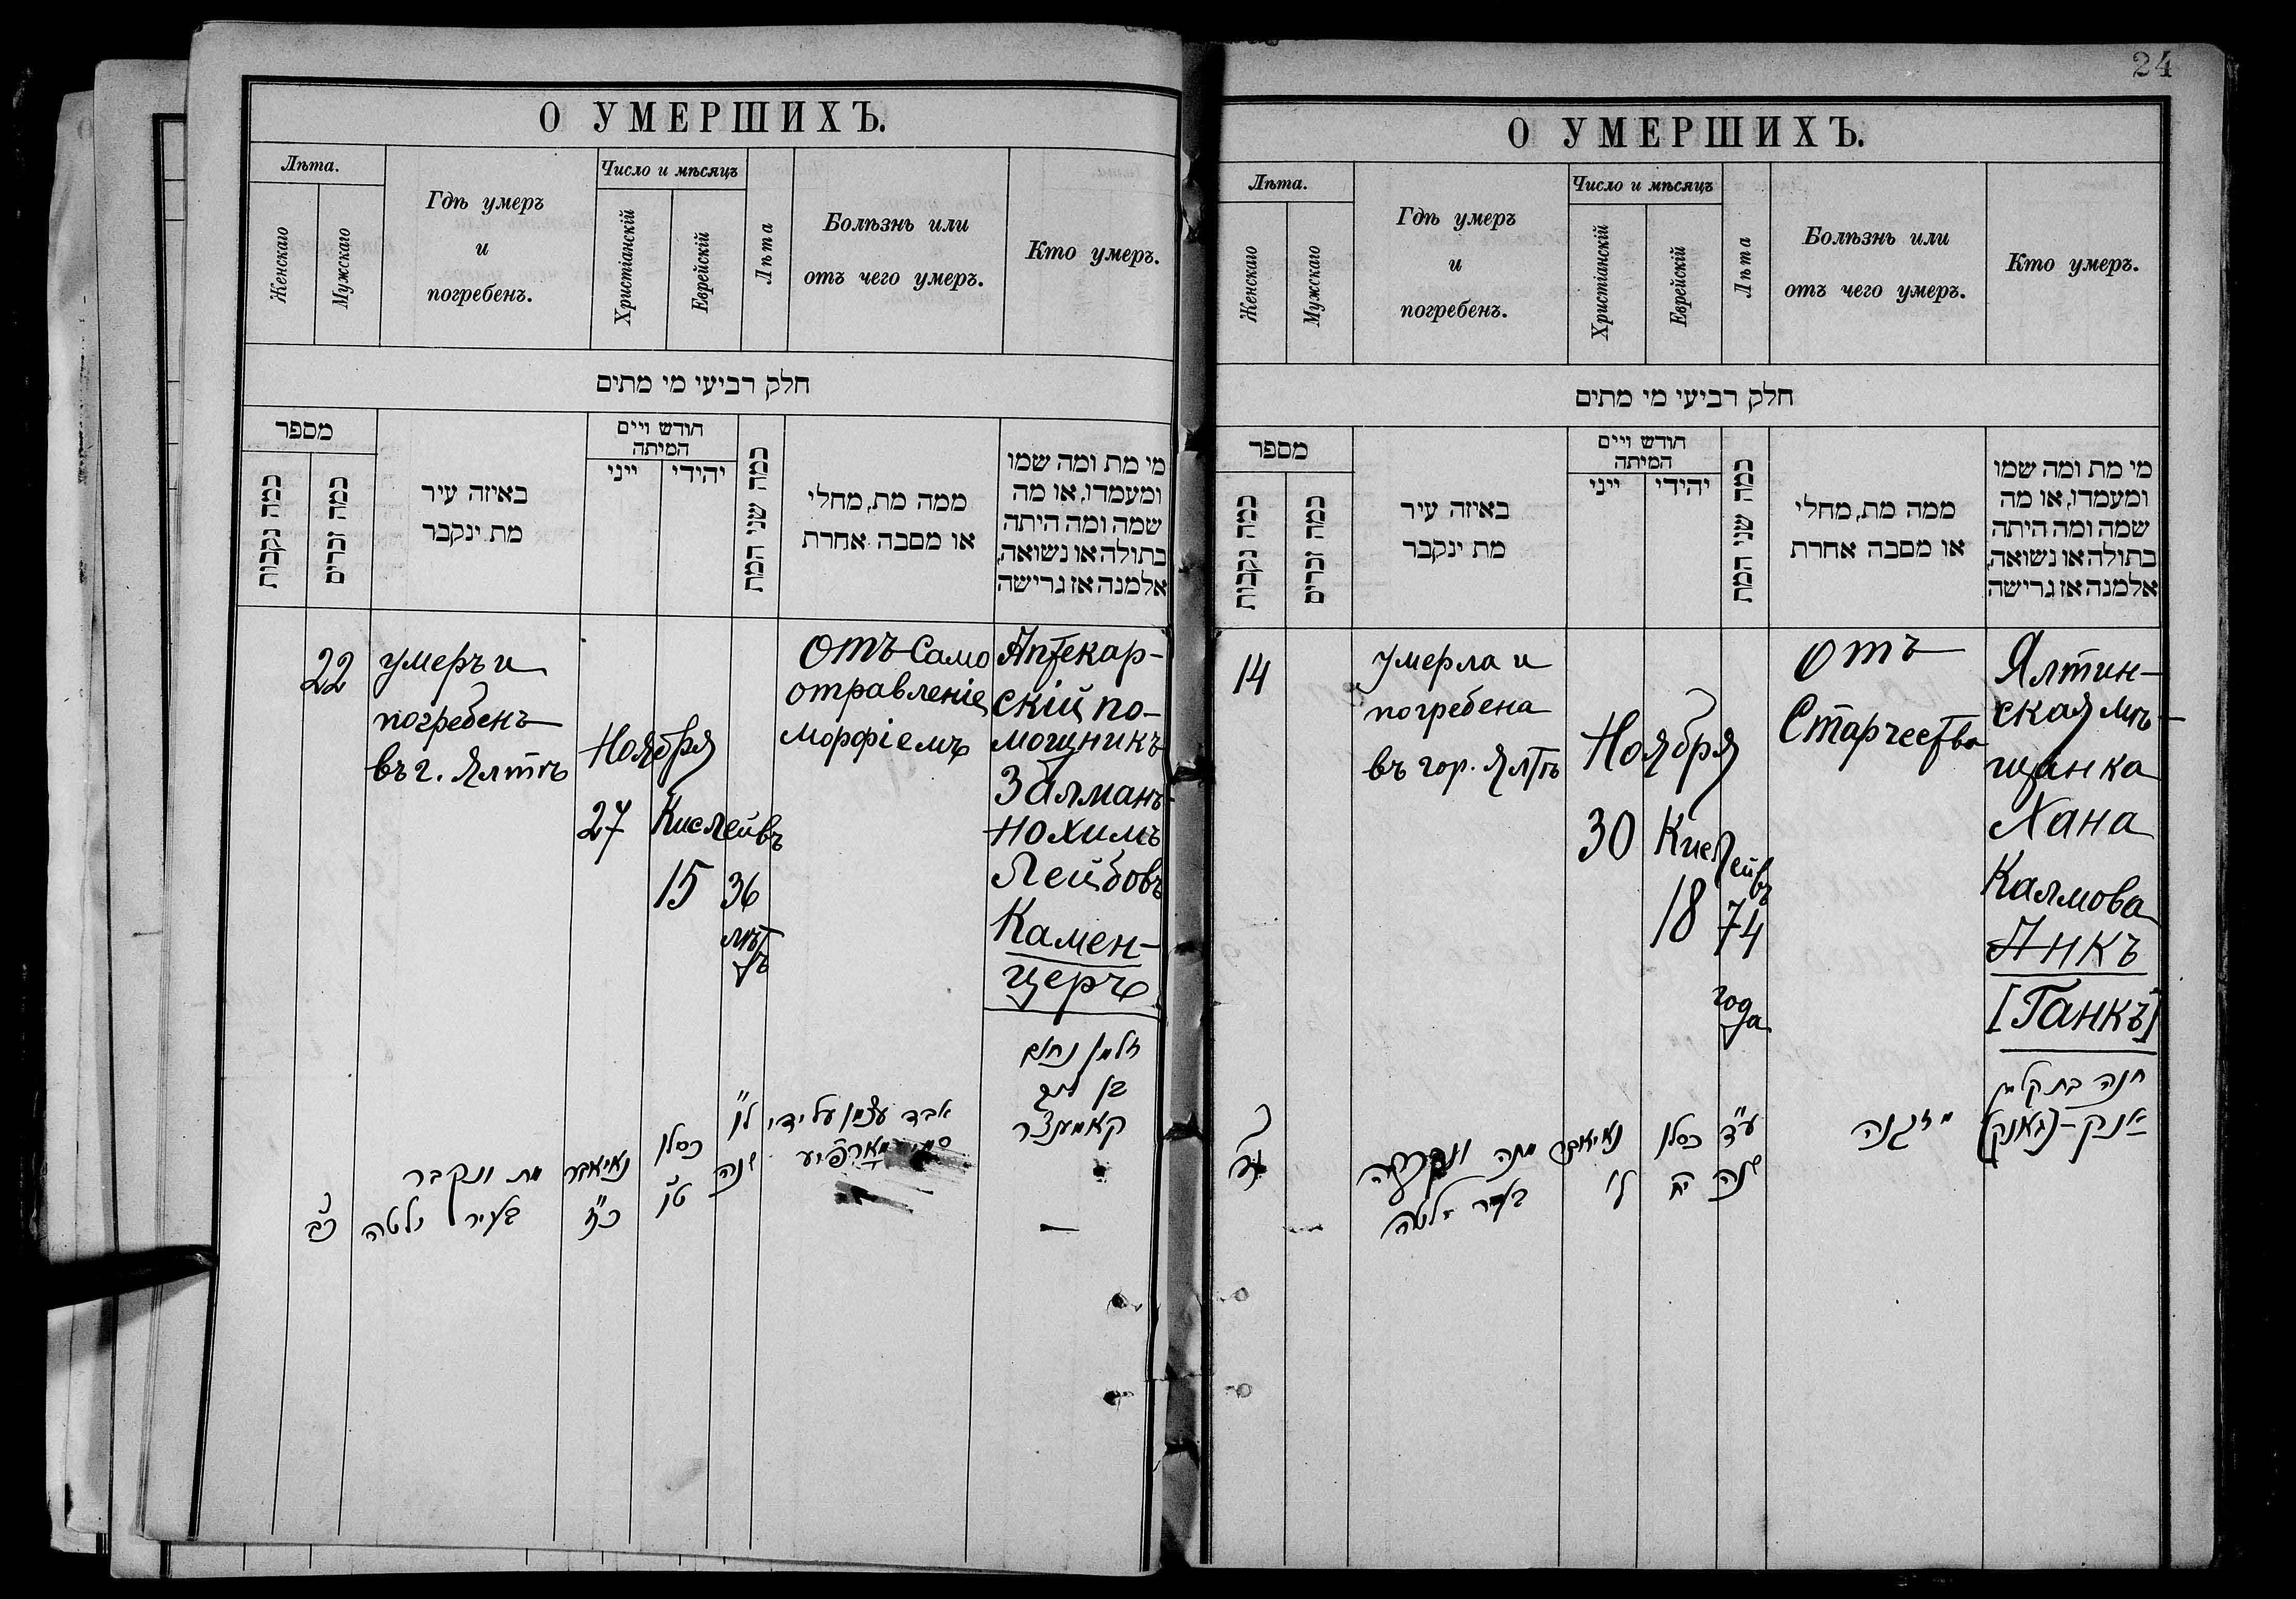 О УМЕРШИХЪ.
Лѣта.
Женскаго
Мужскаго
Гдѣ умеръ
и
погребенъ.
Число и мѣсяцъ
Христіанскій
Еврейскій
Лѣта
Болѣзнь или
отъ чего умеръ.
Кто умеръ.
חלק רביעי מי מתים
מספר
כמה נקבות
כמה זכרים
באיזה עיר
מת ינקבר
חודש ויים
המיתה
ייני
יהידי
כמה שני המת
ממה מת, מחלי
או מסבה אחרת
מי מת ומה שמו
ומעמדו, או מה
שמה ומה היתה
בתולה או נשואה,
אלמנה אז גרישה
22
умеръ и
погребенъ
въ г. Ялтѣ
Ноября
27
Кислейвъ
15
36
лѣтъ
отъ само
отравленіе
морфіемъ
Аптекар-
скій по-
мощникъ
Залманъ-
Нохимъ
Лейбовъ
Камен-
церъ
זלמן נחום
בן ליב
קאמענצר
אבד עצמו על ידי
מארפיע
ל"ו
שנה
כסלו
ט"ו
נאיאבר
כ"ז
מת ונקבר
בעיר ילטה
כב
24
О УМЕРШИХЪ.
Лѣта.
Женскаго
Мужскаго
Гдѣ умеръ
и
погребенъ.
Число и мѣсяцъ
Христіанскій
Еврейскій
Лѣта
Болѣзнь или
отъ чего умеръ.
Кто умеръ.
חלק רביעי מי מתים
מספר
כמה נקבות
כמה זכרים
באיזה עיר
מת ינקבר
חודש ויים
המיתה
ייני
יהידי
כמה שני המת
ממה מת, מחלי
או מסבה אחרת
מי מת ומה שמו
ומעמדו, או מה
שמה ומה היתה
בתולה או נשואה,
אלמנה אז גרישה
14
умерла и
погребена
въ гор. Ялтѣ
Ноября
30
Кислейвъ
18
74
года
отъ
Старчества
Ялтин-
ская мѣ-
щанка
Хана
Калмова
Анкъ
[Ганкъ]
חנה בת קלמן
אנק-(גאנק)
מזקנה
ע"ד
שנה
כסלו
יח
נאיאבר
ל'
מתה ונקברה
בעיר ילטה